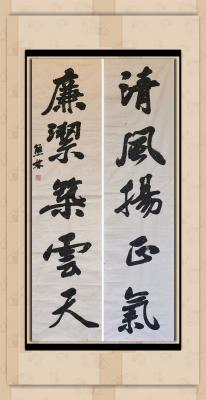 清風揚正氣
廉潔築雲天